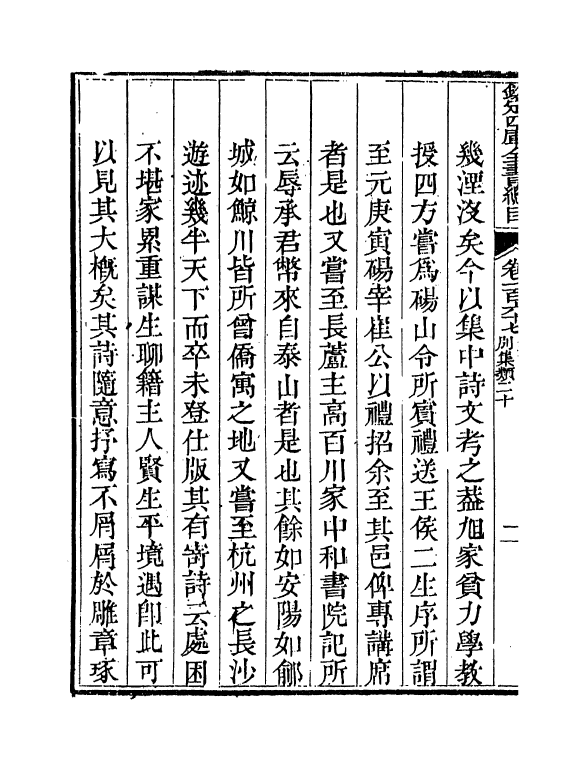 欽定四庫全書總目 卷一百六十七 別集類二十 二
幾湮沒矣今以集中詩文考之葢旭家貧力學教
授四方嘗爲碭山令所賓禮送王侯二生序所謂
至元庚寅碭宰崔公以禮招余至其邑俾專講席
者是也又嘗至長蘆主高百川家中和書院記所
云辱承君幣來自泰山者是也其餘如安陽如鄃
城如鯨川皆所曾僑寓之地又嘗至杭州之長沙
遊迹幾半天下而卒未登仕版其有寄詩云處困
不堪家累重謀生聊籍主人賢生平境遇卽此可
以見其大槪矣其詩隨意抒寫不屑屑於雕章琢